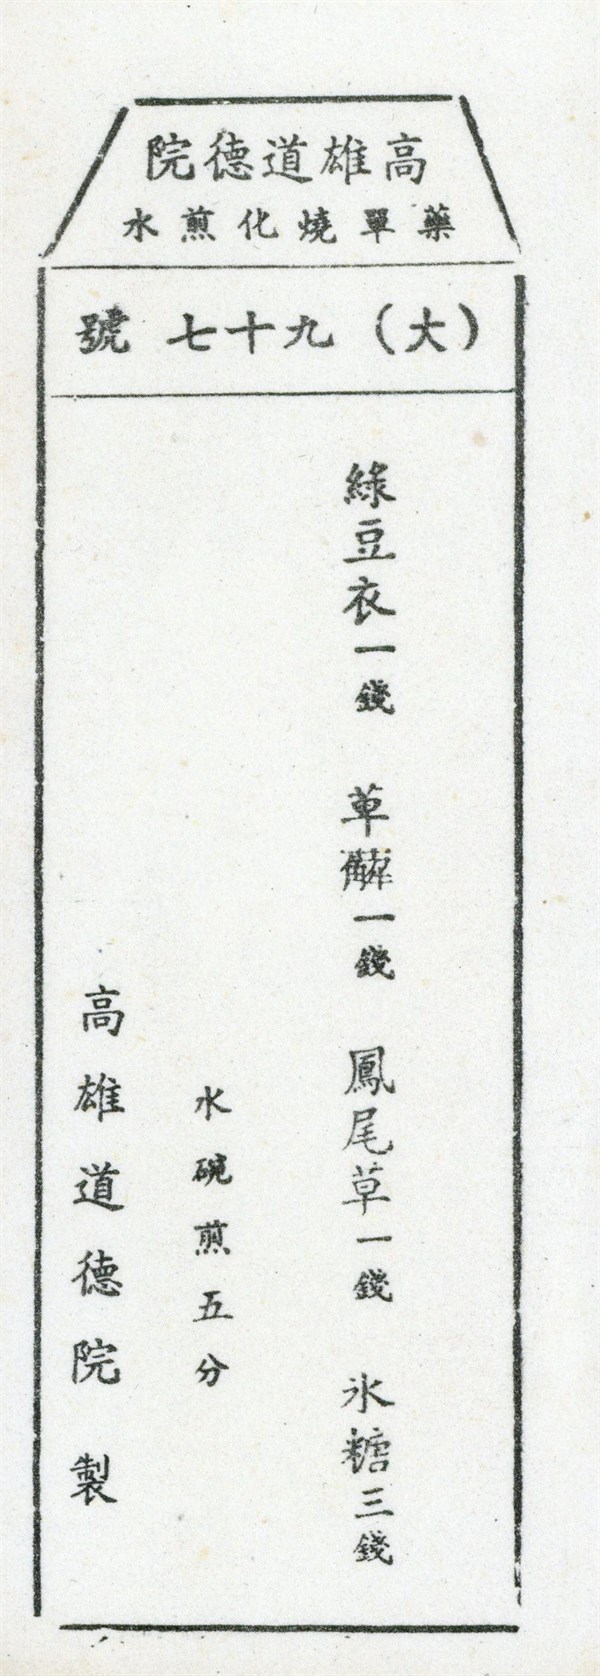 高雄道德院
藥單燒化煎水
（大）九十七號
綠豆衣一錢 草薢一錢 鳳尾草一錢 氷糖三錢
水碗煎五分
高雄道德院製